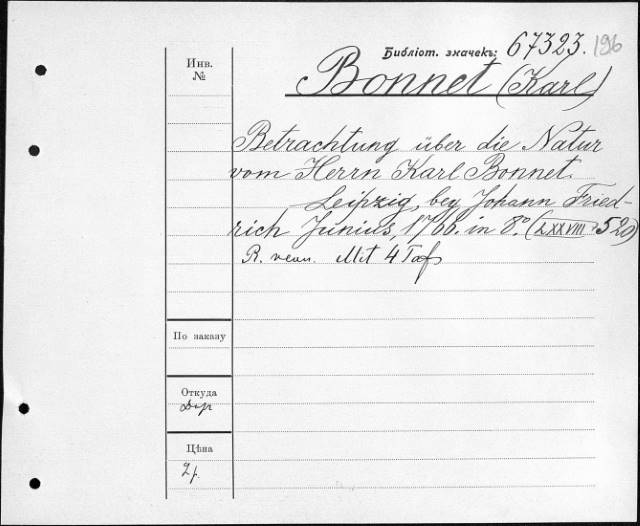 Библіот. значекъ: 67323. 196
Инв.
№
Bonnet (Karl)
Betrachtung über die Natur
vom Herrn Karl Bonnet.
Leipzig, bey Johann Fried-
rich Junius, 1766. in 8°. (LXXVIII, 520)
Mit 4 Taf
По заказу
Откуда
Цѣна
2 р.